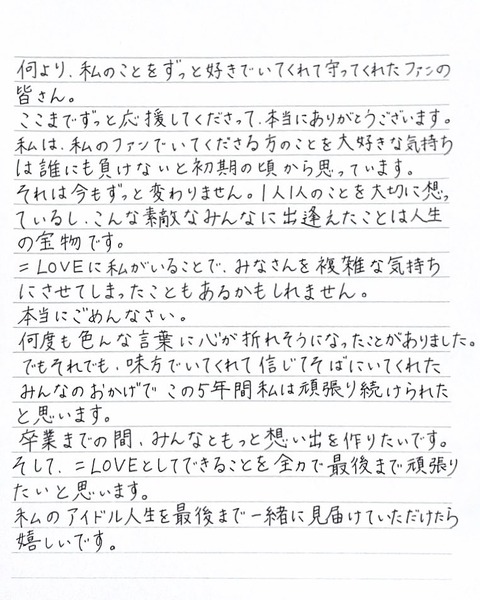 何より、私のことをずっと好きでいてくれて守ってくれたファンの
皆さん。
ここまでずっと応援してくださって、本当にありがとうございます。
私は、私のファンでいてくださる方のことを大好きな気持ち
は誰にも負けないと初期の頃から思っています。
それは今もずっと変わりません。1人1人のことを大切に想っ
ているし、こんな素敵なみんなに出逢えたことは人生
の宝物です。
=LOVEに私がいることで、みなさんを複雑な気持ち
にさせてしまったこともあるかもしれません。
本当にごめんなさい。
何度も色んな言葉に心が折れそうになったことがありました。
でもそれでも、味方でいてくれて信じてそばにいてくれた
みんなのおかげでこの5年間私は頑張り続けられた
と思います。
卒業までの間、みんなともっと想い出を作りたいです。
そして、=LOVEとしてできることを全力で最後まで頑張り
たいと思います。
私のアイドル人生を最後まで一緒に見届けていただけたら
嬉しいです。